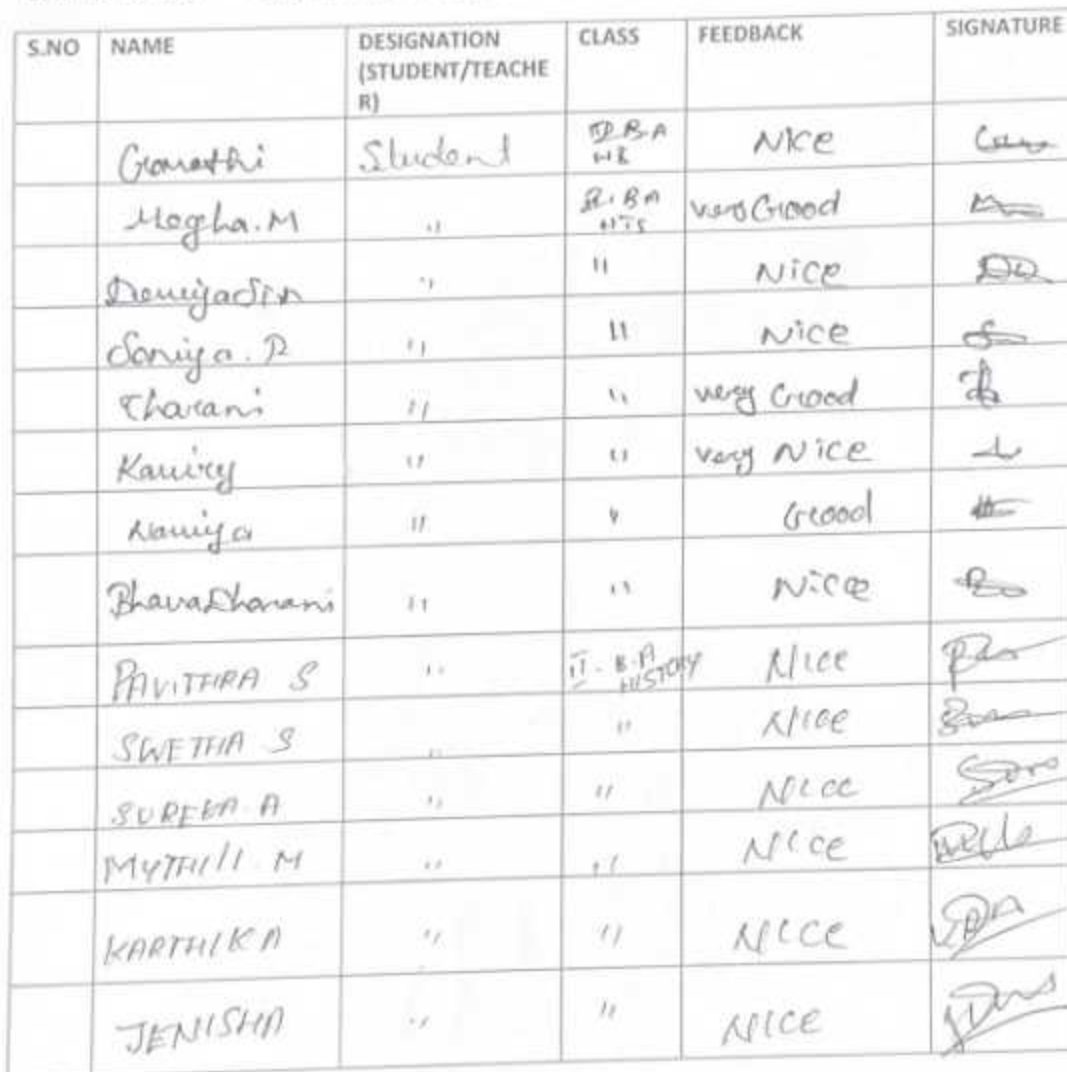 S.NO NAME DESIGNATION (STUDENT/TEACHER) CLASS FEEDBACK SIGNATURE
Gomathi Student B.A Nice
Megha.M " B.A HIS very Good
" " Nice
Soniya.P " " Nice
Tharani " " very Good
" " very Nice
" " Good
Bhavadharani " " Nice
PAVITHRA S " II - B.A HISTORY NICE
SWETHA S " " NICE
SUREKA A " " NICE
MYTHILI. M " " NICE
KARTHIKA " " NICE
JENISHA " " NICE